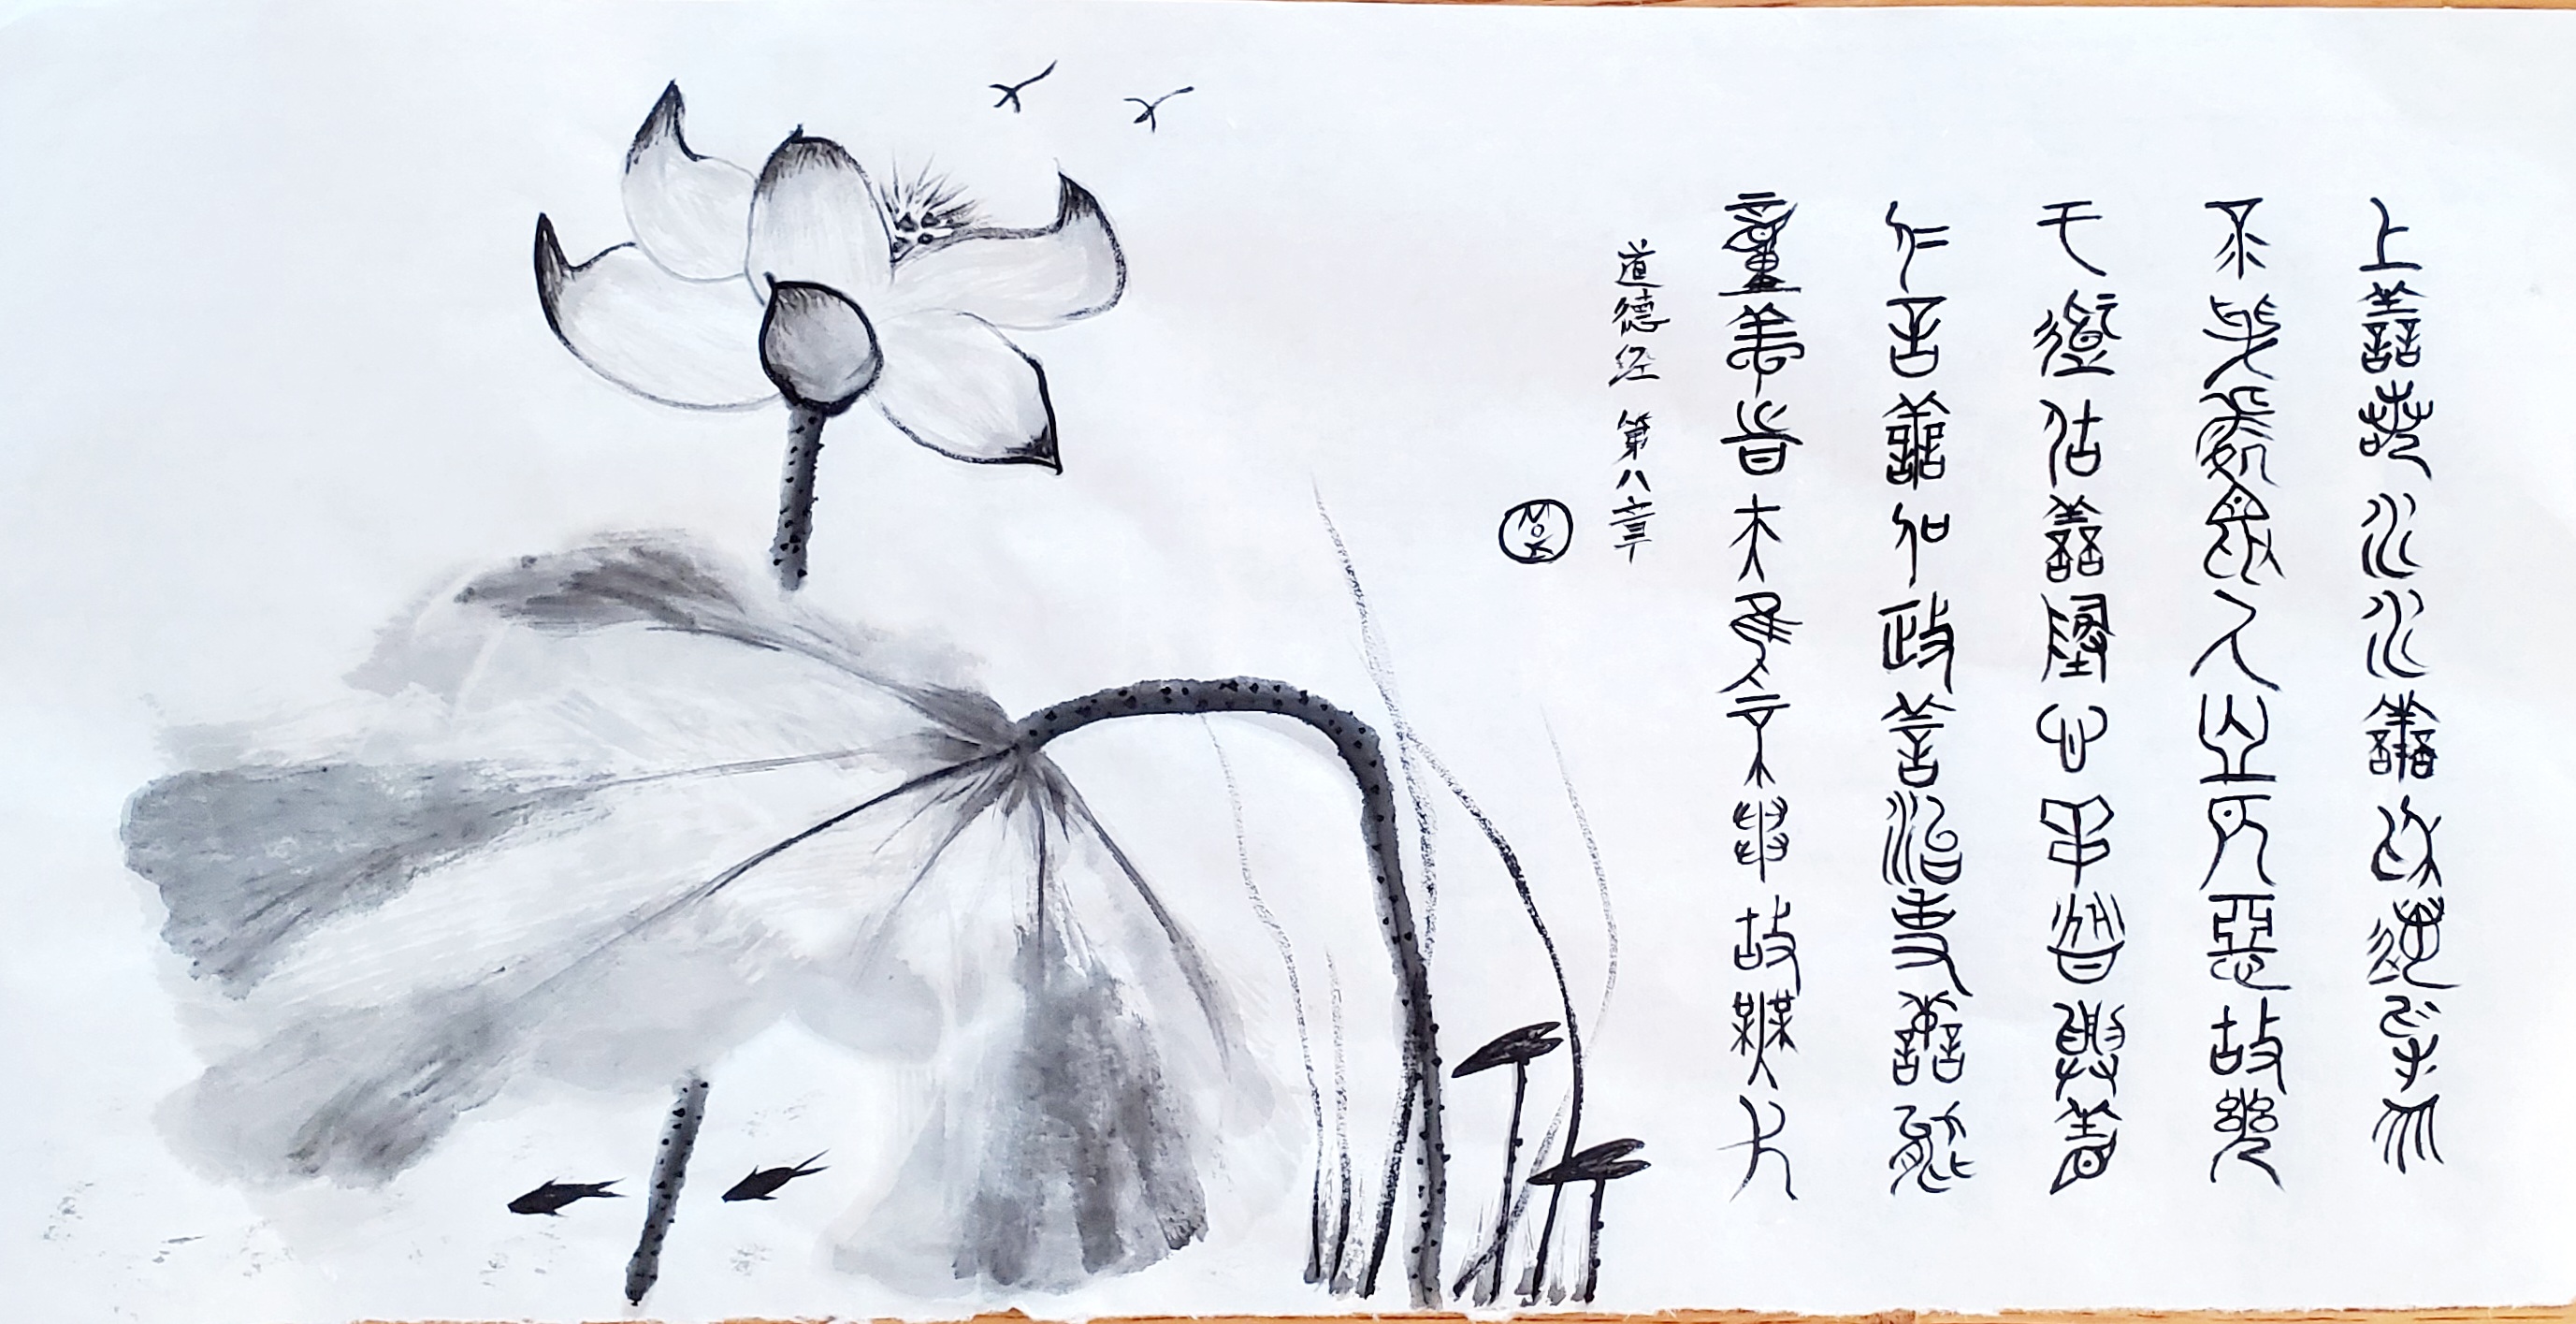 上善若水水善利萬物而
不爭處眾人之所惡故幾
于道居善地心善淵與善
仁言善信政善治事善能
動善時夫唯不爭故無尤
道德经 第八章
MOK